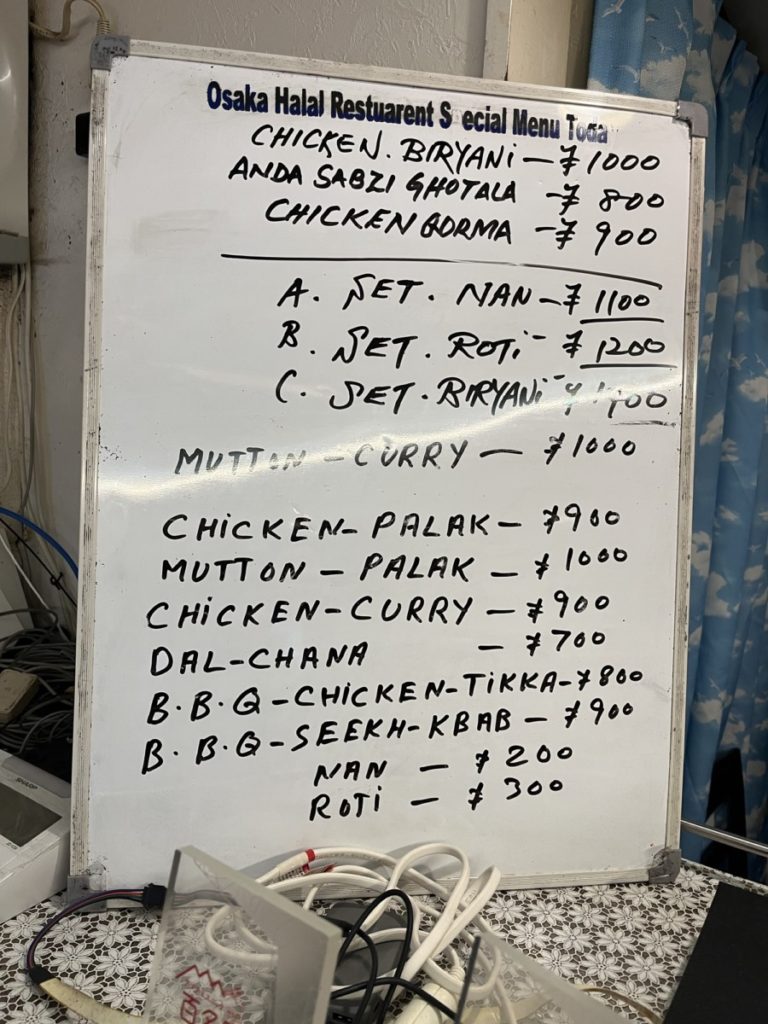 Osaka Halal Restuarent S ecial Menu Toda
CHICKEN. BIRYANI - ¥1000
ANDA SABZI GHOTALA - ¥ 800
CHICKEN QORMA - ¥ 900
A. SET. NAN - ¥ 1100
B. SET. ROTI - ¥ 1200
C. SET. BIRYANI - ¥
MUTTON - CURRY - ¥1000
CHICKEN - PALAK - ¥900
MUTTON - PALAK - ¥ 1000
CHICKEN - CURRY - ¥900
DAL - CHANA - ¥700
B.B.Q - CHICKEN - TIKKA - ¥800
B.B.Q - SEEKH - KBAB - ¥900
NAN - ¥ 200
ROTI - ¥ 300
SHARP